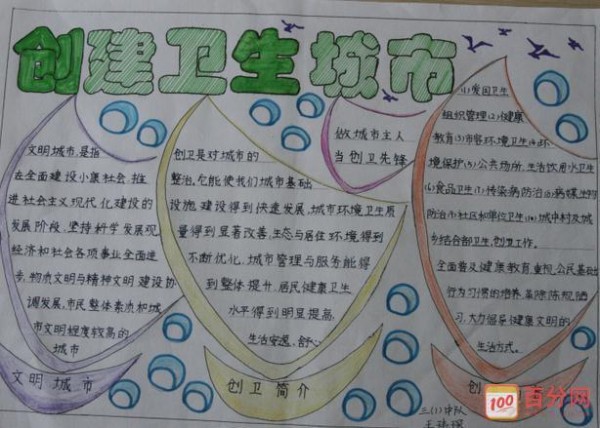 创建卫生城市
文明城市,是指
在全面建设小康社会,推
进社会主义现代化建设的
发展阶段,坚持科学发展观,
经济和社会各项事业全面进
步,物质文明与精神文明建设协
调发展,市民整体素质和城
市文明程度较高的
城市
文明城市
创卫是对城市的
整治,它能使我们城市基础
设施建设得到快速发展,城市环境卫生质
量得到显著改善,生态与居住环境得到
不断优化,城市管理与服务能得
到整体提升,居民健康卫生
水平得到明显提高,
生活安逸、舒心
创卫简介
做城市主人
当创卫先锋
(1)爱国卫生
组织管理(2)健康
教育(3)市容环境卫生(4)环
境保护(5)公共场所、生活饮用水卫生
(6)食品卫生(7)传染病防治(8)病媒生物
防治(9)社区和单位卫生(10)城中村及城
乡结合部卫生,创卫工作。
全面普及健康教育,重视公民基础
行为习惯的培养,革除陈规陋
习,大力倡导健康文明的
生活方式。
创
三(1)中队
100 百分网